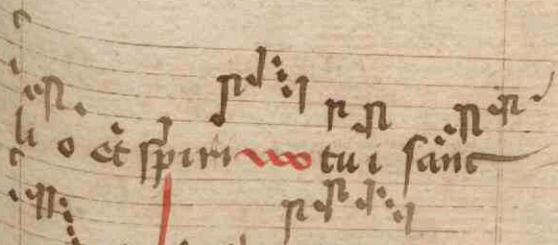 li o et spiri tui sanct